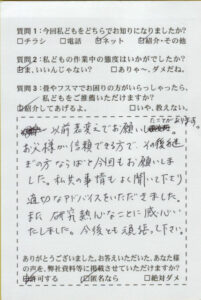 質問1：今回私どもをどちらでお知りになりましたか?
□チラシ □電話 ☑ネット ☑紹介・その他
質問2：私どもの作業中の態度はいかがでしたか?
☑ま、いいんじゃない? □ありゃ~、ダメだね。
質問3：畳やフスマでお困りの方がいらっしゃったら、
私どもをご推薦いただけますか?
☑紹介してあげるよ。 □いや、教えない。
以前畳替えでお願いし
お父様が信頼できる方で、その後継
ぎの方ならばと今回もお願いしま
した。私共の事情もよく聞いて下さり
適切なアドバイスをいただきました。
また研究熱心なことに感心い
たしました。今後とも頑張って下さい。
ありがとうございました。お答えいただいた、あなた様
の声を、弊社資料等に掲載させていただけますか?
□許可する ☑匿名なら □絶対ダメ